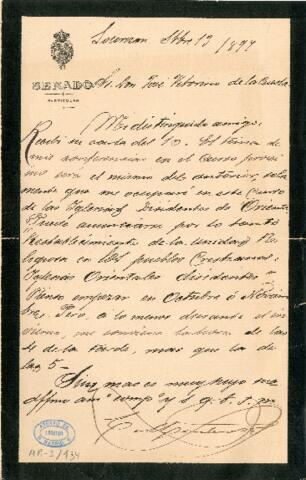 SENADO
PARTICULAR
Sr. Don José Victoriano de la Cuesta
Mi distinguido amigo:
Recibí su carta del 10. El tema de
mis conferencias en el Curso próximo
será el mismo del anterior, sola
mente que me ocuparé en este Curso
de las Iglesias disidentes de Oriente
Puede anunciarse por lo tanto
Restablecimiento de la unidad Re
ligiosa en los pueblos Cristianos.
Iglesias Orientales disidentes
Pienso empezar en Octubre ó Noviem
bre. Pero, a lo menos durante el in
vierno, me conviene la hora de las
4 de la tarde, mas que la de
las 5-
Sin mas es muy suyo
affmo am
ARCHIVO DE
MADRID